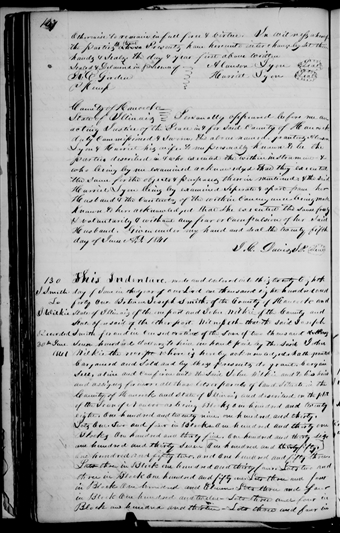 otherwise to remain in full force & virtue. In witness whereof
the parties above Presents have hereunto interchangeably set their
hands & Seals the day & year first above written
Sealed & Delivered in presence of Alanson Lyon Seal
Harriet Lyon Seal
County of Hancock
State of Illinois Personally appeared before me an
acting Justice of the Peace in & for said County of Hancock
duly Commissioned & Sworn the above named Alanson
Lyon & Harriet his wife to me personally known to be the
parties described in & who executed the within instrument &
who being by me examined acknowledged that they executed
the same for the objects & purposes therein mentioned & the said
Harriet Lyon being by me examined separate & apart from her
Husband & the contents of the within Conveyance being made
known to her acknowledged that she executed the same freely
& voluntarily & without any fear or compulsion of her said
Husband. Given under my hand and seal the twenty fifth
day of June AD 1841
130 This Indenture made and entered into this twenty
J Smith day of June in the year of our Lord one thousand eight hundred and
to forty one Between Joseph Smith of the County of Hancock and
State of Illinois of the one part and John of the County and
recorded State aforesaid of the other part Witnesseth that the said Joseph
30th June Smith for and in consideration of the sum of two thousand
1841 hundred dollars to him in hand paid by the said John
the receipt whereof is hereby acknowledged doth grant
Bargained and Sold and by these presents do grant bargain
Sell, alien and confirm unto the said John and his heirs
and assigns forever all those lots or parcels of land situate in the
County of Hancock and State of Illinois and described in the plat
of the Town of as being Blocks one hundred and twenty
eight One hundred and twenty nine one hundred and thirty
Lots One two and four in Block one hundred and thirty one
Blocks One hundred and thirty five One hundred and thirty six
one hundred and thirty seven One hundred and
one hundred and fifty two, and one hundred and fifty three
Lots three in Block one hundred and thirty four Lots two and
three in Block one hundred and fifty one Lots three and four
in Block one hundred and Lots three and four
in Block One hundred and twelve Lots three and four in
Block one hundred and thirteen Lots three and four in